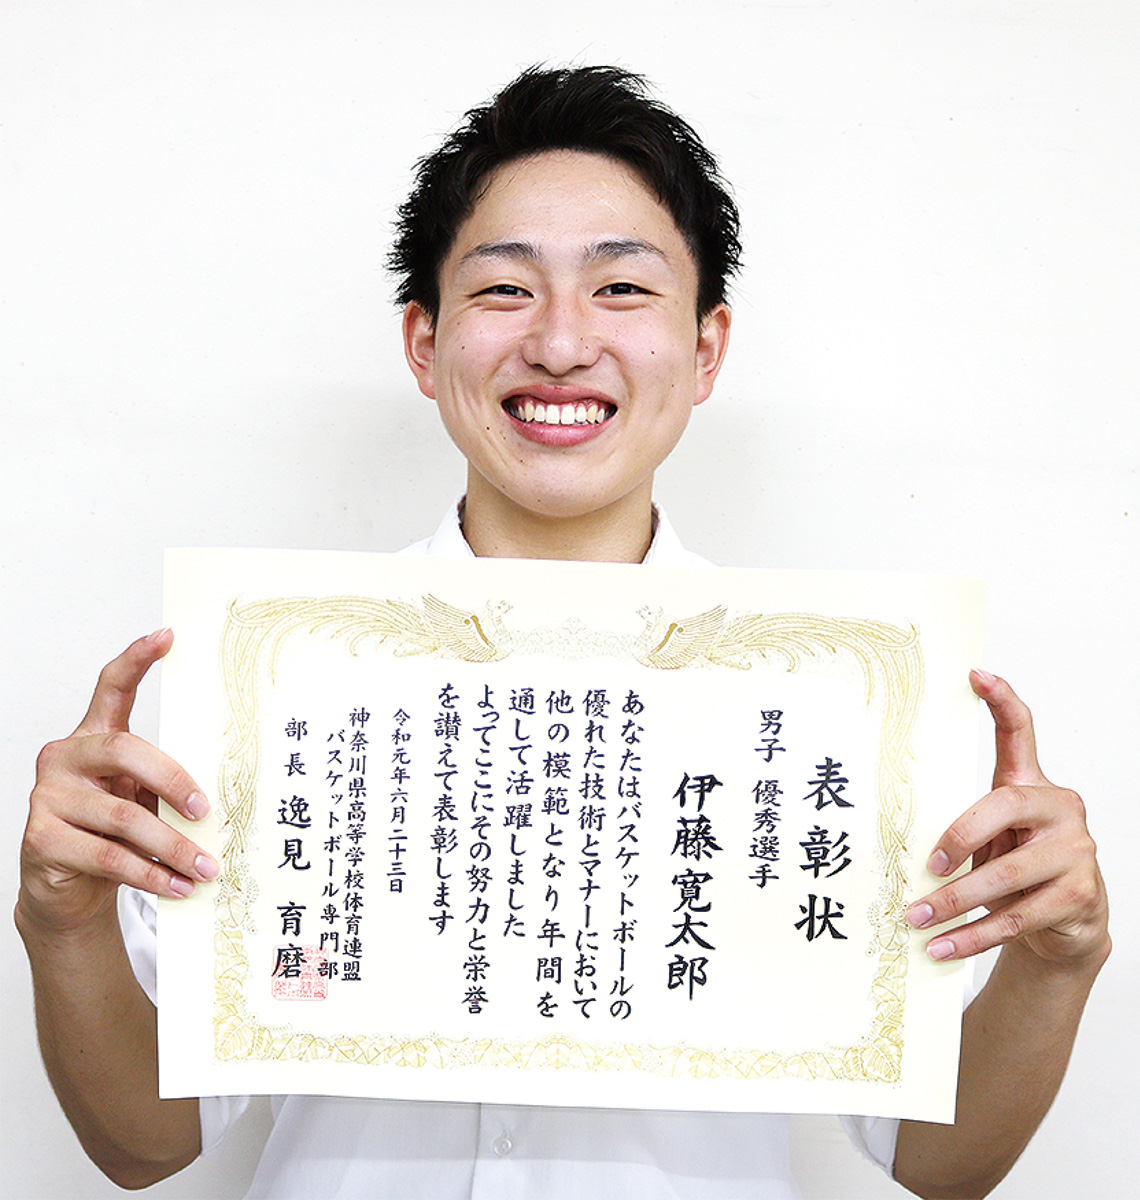 表彰状
男子 優秀選手
伊藤寛太郎
あなたはバスケットボールの
優れた技術とマナーにおいて
他の模範となり年間を
通して活躍しました
よってここにその努力と栄誉
を讃えて表彰します
令和元年六月二十三日
神奈川県高等学校体育連盟
バスケットボール専門部
部長 逸見 育磨